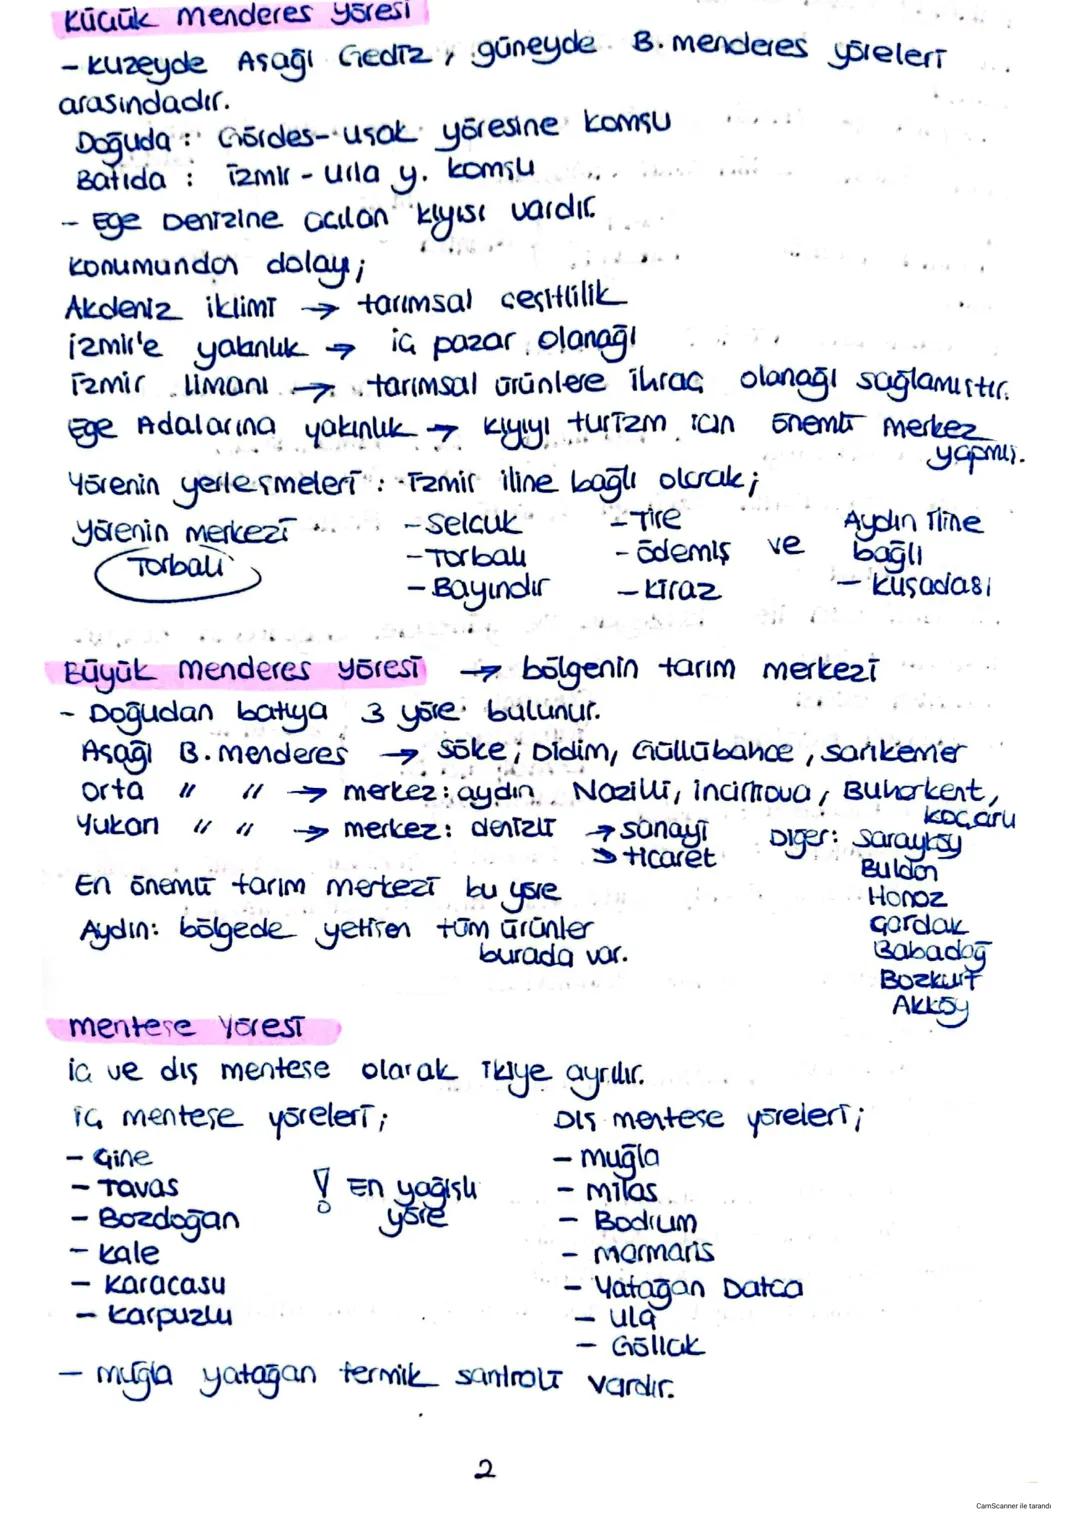 Küçük menderes yöresi
- kuzeyde Aşağı Gediz, güneyde B. menderes yöreleri
arasındadır.
Doğuda : Gördes-uşak yöresine komşu
Batıda : izmir - urla y. komşu
- Ege Denizine açılan kıyısı vardır.
Konumundan dolayı;
Akdeniz iklimi → tarımsal çeşitlilik
izmir'e yakınlık → iç pazar olanağı
izmir limanı → tarımsal ürünlere ihraç olanağı sağlamıştır.
Ege Adalarına yakınlık → kıyıyı turizm için önemli merkez
yapmış.
Yörenin yerleşmeleri : İzmir iline bağlı olarak;
yörenin merkezi - Selçuk - Tire Aydın iline
Torbalı - Torbalı - ödemiş ve bağlı
- Bayındır - kiraz - kuşadası
Büyük menderes yöresi → bölgenin tarım merkezi
- Doğudan batıya 3 yöre bulunur.
Aşağı B. menderes → söke, Didim, Güllübahçe, sarıkemer
orta " " → merkez: aydın Nazilli, incirliova, Buharkent,
koçarlı
Yukarı " " → merkez: denizli → sanayi Diğer: sarayköy
→ ticaret Buldan
En önemli tarım merkezi bu yöre Honaz
Aydın: bölgede yetişen tüm ürünler Gardak
burada var. Babadağ
Bozkurt
Akköy
menteşe yöresi
iç ve dış menteşe olarak ikiye ayrılır.
iç menteşe yöreleri; Dış menteşe yöreleri;
- Çine - muğla
- Tavas ! En yağışlı - milas
- Bozdoğan yöre - Bodrum
- kale - marmaris
- karacasu - Yatağan Datça
- karpuzlu - ula
- Göllük
- muğla yatağan termik santrali vardır.
2
CamScanner ile tarandı